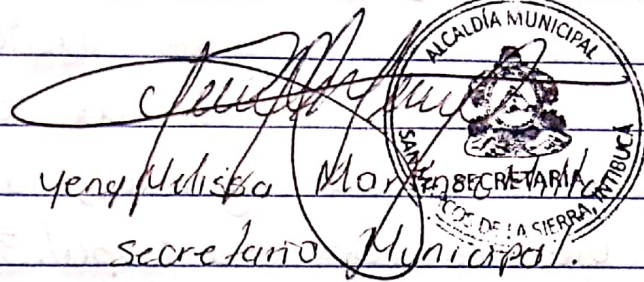 ALCALDÍA MUNICIPAL
SECRETARIA
SAN COS DE LA SIERRA, INTIBUCÁ
Yeny Melissa
secretario Municipal.